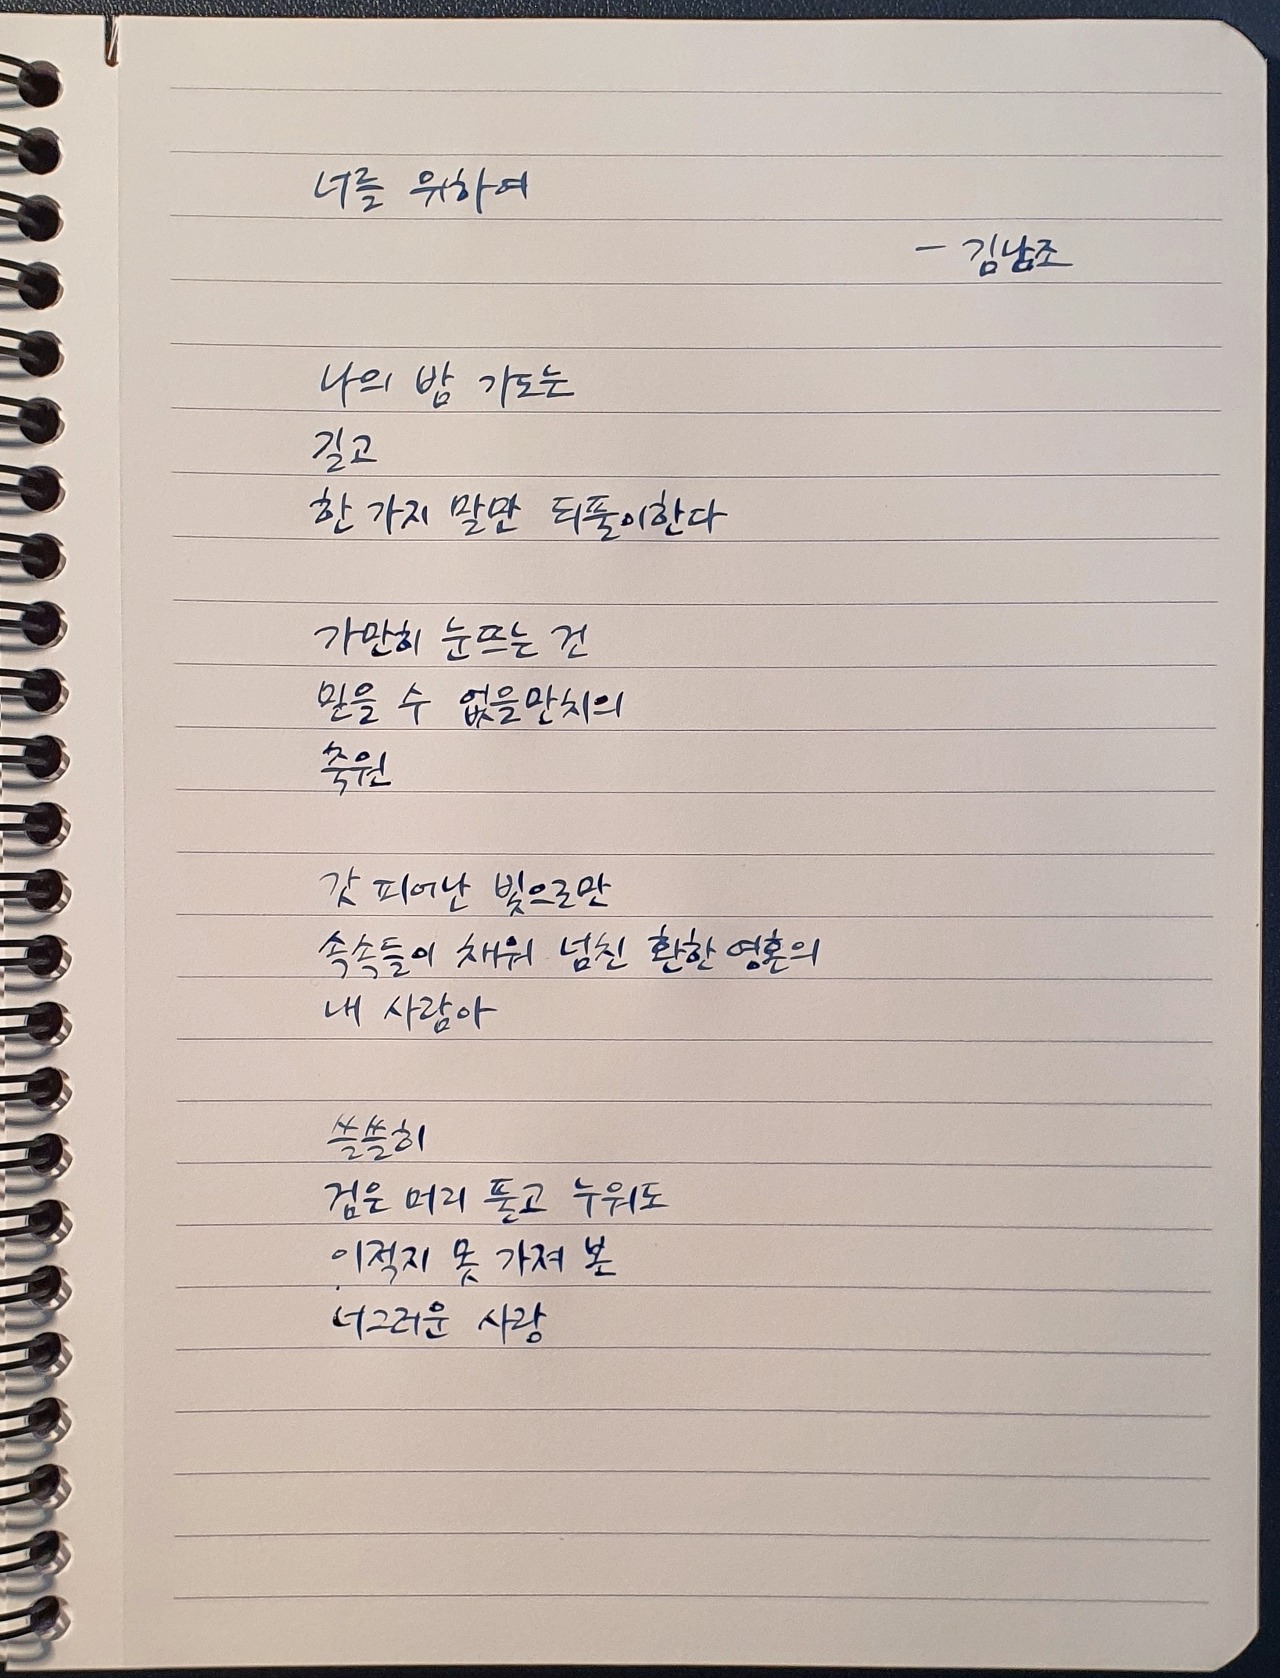 너를 위하여
- 김남조
나의 밤 기도는
길고
한 가지 말만 되풀이한다
가만히 눈뜨는 건
믿을 수 없을만치의
축원
갓 피어난 빛으로만
속속들이 채워 넘친 환한 영혼의
내 사람아
쓸쓸히
검은 머리 풀고 누워도
이적지 못 가져 본
너그러운 사랑